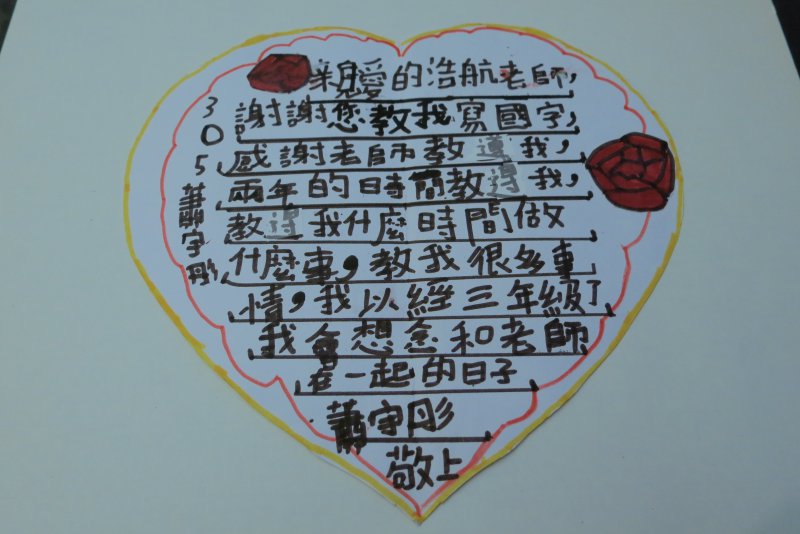 親愛的浩航老師,
謝謝您教我寫國字,
感謝老師教導我,
兩年的時簡教得我,
教得我什麼時間做
什麼事,教我很多事
情,我以經三年級了
我會想念和老師
在一起的日子
蕭宇彤
敬上
305蕭宇彤